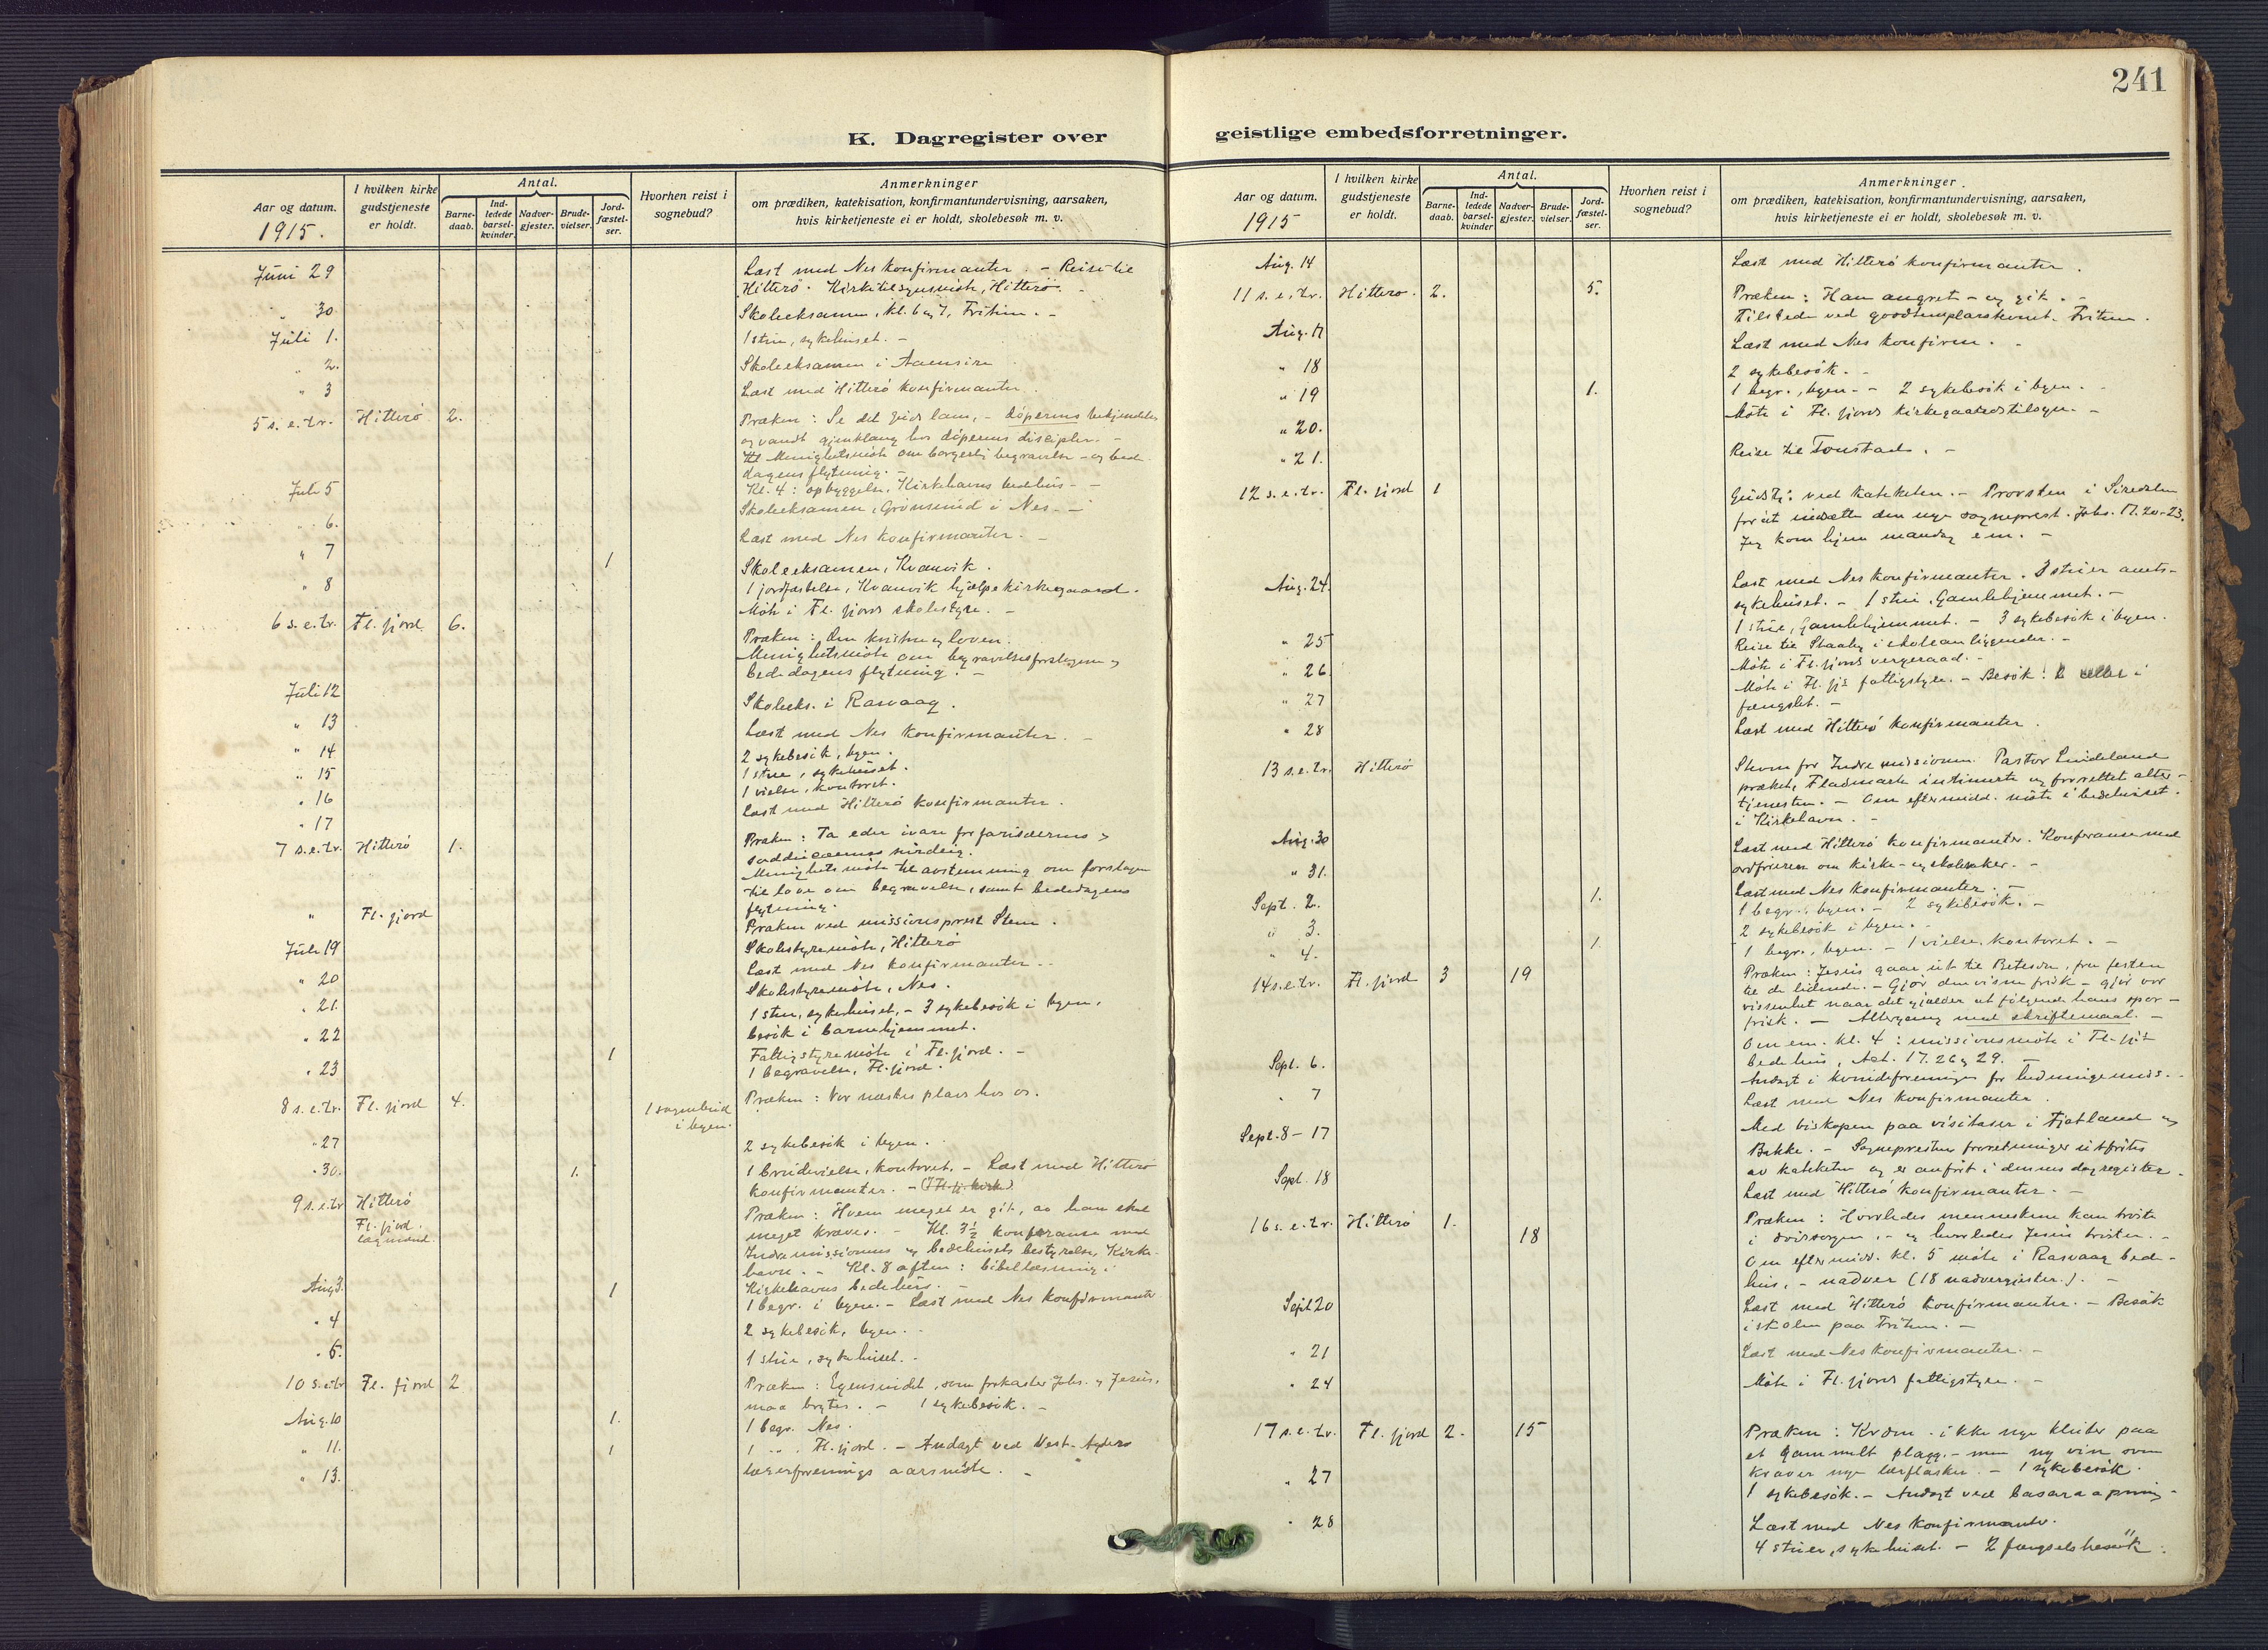 241
K. Dagregister over
geistlige embedsforretninger.
Aar og datum.
1915.
I hvilken kirke
gudstjeneste
er holdt.
Antal.
Barne-
daab.
Ind-
ledede
barsel-
kvinder.
Nadver-
gjester.
Brude-
vielser.
Jord-
fæstel-
ser.
Hvorhen reist i
sognebud?
Anmerkninger
om prædiken, katekisation, konfirmantundervisning, aarsaken,
hvis kirketjeneste ei er holdt, skolebesøk m. v.
Juni 29 Læst med Nes konfirmanter. - Reise til
Hitterö. Kirketilsynsmöte, Hitterö.
" 30 Skoleeksamen, kl. 6 og 7, Fritun. -
Juli 1. 1 stue, sykehuset. -
" 2. Skoleeksamen i Aaensire
" 3 Læst med Hitterö konfirmanter.
5 s. e. tr. Hitterö 2. Præken: Se det Guds lam, - döperens bekjendelse
og vandt gjenklang hos döperens disciple. -
Menighetsmöte om borgerlig begravelse - og bede-
dagens flytning. -
Kl. 4: opbyggelse, Kirkehavns bedehus -
Juli 5 Skoleeksamen, Grönsund i Nes. -
" 6. Læst med Nes konfirmanter. -
" 7 1 Skoleeksamen, Kvanvik.
" 8 1 jordfæstelse, Kvanvik hjælpekirkegaard.
Möte i Fl. fjords skolestyre. -
6 s. e. tr. Fl. fjord 6. Præken: Den kristne og loven.
Menighetsmöte om begravelsesforslagene og
bededagens flytning. -
Juli 12 Skoleeks. i Rasvaag.
" 13 Læst med Nes konfirmanter. -
" 14 2 sykebesök, byen.
" 15 1 stue, sykehuset.
" 16 1 vielse, kontoret.
" 17 Læst med Hitterö konfirmanter.
7 s. e. tr. Hitterö 1. Præken: Ta eder ivare for farisæernes og
sadducæernes surdeig.
Menighetsmöte til avstemning om forslagene
til love om begravelse, samt bededagens
flytning.
" Fl. fjord Præken ved missionsprest Stene.
Juli 19 Skolestyremöte, Hitterö
" 20 Læst med Nes konfirmanter. -
" 21. Skolestyremöte, Nes.
" 22 1 stue, sykehuset. - 3 sykebesök i byen.
besök i barnehjemmet.
" 23 1 Fattigstyremöte i Fl. fjord. -
1 begravelse, Fl. fjord.
8 s. e. tr. Fl. fjord 4. 1 sognebud
i byen. Præken: Vor næstes plass hos os.
" 27 2 sykebesök i byen.
" 30. 1. 1 brudevielse, kontoret. - Læst med Hitterö
konfirmanter. - (Fl. fj. kirke)
9 s. e. tr. Hitterö Præken: Hvem meget er git, av ham skal
Fl. fjord.
meget kræves. - Kl. 3½ konferanse med
Indremissionens og bedehusets bestyrelse, Kirke-
havn. - Kl. 8 aften: bibellæsning i
Kirkehavns bedehus. -
Aug. 3. 1 1 begr. i byen. - Læst med Nes konfirmanter
" 4 2 sykebesök, byen. -
" 6. 1 stue, sykehuset. -
10 s. e. tr. Fl. fjord 2 Præken: Egensindet, som forkaster Johs. og Jesus,
maa brytes. - 1 sykebesök. -
Aug. 10 1. 1 begr. Nes.
" 11. 1 1 " . Fl. fjord. - Andagt ved Vest-Agders
" 13. lægerforenings aarsmöte. -
Aar og datum.
1915
I hvilken kirke
gudstjeneste
er holdt.
Antal.
Barne-
daab.
Ind-
ledede
barsel-
kvinder
Nadver-
gjester.
Brude-
vielser.
Jord-
fæstel-
ser.
Hvorhen reist i
sognebud?
Anmerkninger.
om prædiken, katekisation, konfirmantundervisning, aarsaken,
hvis kirketjeneste ei er holdt, skolebesøk m. v.
Aug. 14 Læst med Hitterö konfirmanter.
11 s. e. tr. Hitterö. 2. 5. Præken: Han angret - og gik. -
Tilstede ved goodtemplarstevnet. Fritun.
Aug. 17 Læst med Nes konfirm. -
" 18 2 sykebesök. -
" 19 1. 1 begr., byen. - 2 sykebesök i byen. -
" 20. Möte i Fl. fjords kirkegaardstilsyn. -
" 21. Reise til Tonstad. -
12 s. e. tr. Fl. fjord 1 Gudstj. ved kateketen. - Provsten i Siredalen
for at indsætte den nye sogneprest. Johs. 17. 20-23.
Jeg kom hjem mandag em. -
Aug. 24. Læst med Nes konfirmanter. 3 stuer amts-
sykehuset. - 1 stue, Gamlehjemmet. -
1 stue, Gamlehjemmet. - 3 sykebesök i byen.
" 25 Reise til Staaby i skoleanliggender. -
" 26 Möte i Fl. fjords vergeraad. -
" 27 Möte i Fl. fjs fattigstyre. - Besök: 2 celler i
fængslet. -
" 28 Læst med Hitterö konfirmanter.
13 s. e. tr. Hitterö Stevne for Indremissionen. Pastor Lindeland
præket, Fladmark intimerte og forrettet alter-
tjenesten. - Om eftermidd. möte i bedehuset
i Kirkehavn. -
Aug. 30 Læst med Hitterö konfirmanter. Konferanse med
ordföreren om kirke- og skolesaker. -
" 31. Læst med Nes konfirmanter. -
Sept. 2. 1. 1 begr., byen. - 2 sykebesök. -
" 3. 2 sykebesök i byen. -
" 4. 1. 1 begr., byen. - 1 vielse, kontoret. -
14 s. e. tr. Fl. fjord 3 19 Præken: Jesus gaar ut til Betesda, fra festen
til de lidende. - Gjör den visne frisk - gjör vor
vissenhet naar det gjælder at fölge hans spor -
frisk. - Altergang med skriftemaal. -
Om em. kl. 4: missionsmöte i Fl. fj.
bedehus, Act. 17. 26 og 29. -
Sept. 6. Andagt i kvindeforeningen for hedningemiss. -
" 7 Læst med Nes konfirmanter.
Sept. 8 - 17 Med biskopen paa visitaser i Fjotland og
Bakke. - Sogneprestens forretninger utförtes
av kateketen og er anfört i dennes dagregister. -
Sept. 18 Læst med Hitterö konfirmanter. -
16 s. e. tr. Hitterö 1. 18 Præken: Hvorledes menneskene kan tröste
i dödssorgen, - og hvorledes Jesus tröster. -
Om eftermidd. kl. 5 möte i Rasvaag bede-
hus, - nadver (18 nadvergjester.). -
Sept 20 Læst med Hitterö konfirmanter. - Besök
i skolen paa Fritun. -
" 21 Læst med Nes konfirmanter. -
" 24 Möte i Fl. fjords fattigstyre. -
17 s. e. tr. Fl. fjord 2. 15 Præken: Kvæn - ikke nye kluter paa
et gammelt plagg, - men ny vin som
kræver nye lærflasker. - 1 sykebesök.
" 27 1 sykebesök. - Andagt ved basaraapning -
" 28 Læst med Nes konfirmanter.
4 stuer, sykehuset. - 2 fængselsbesök.